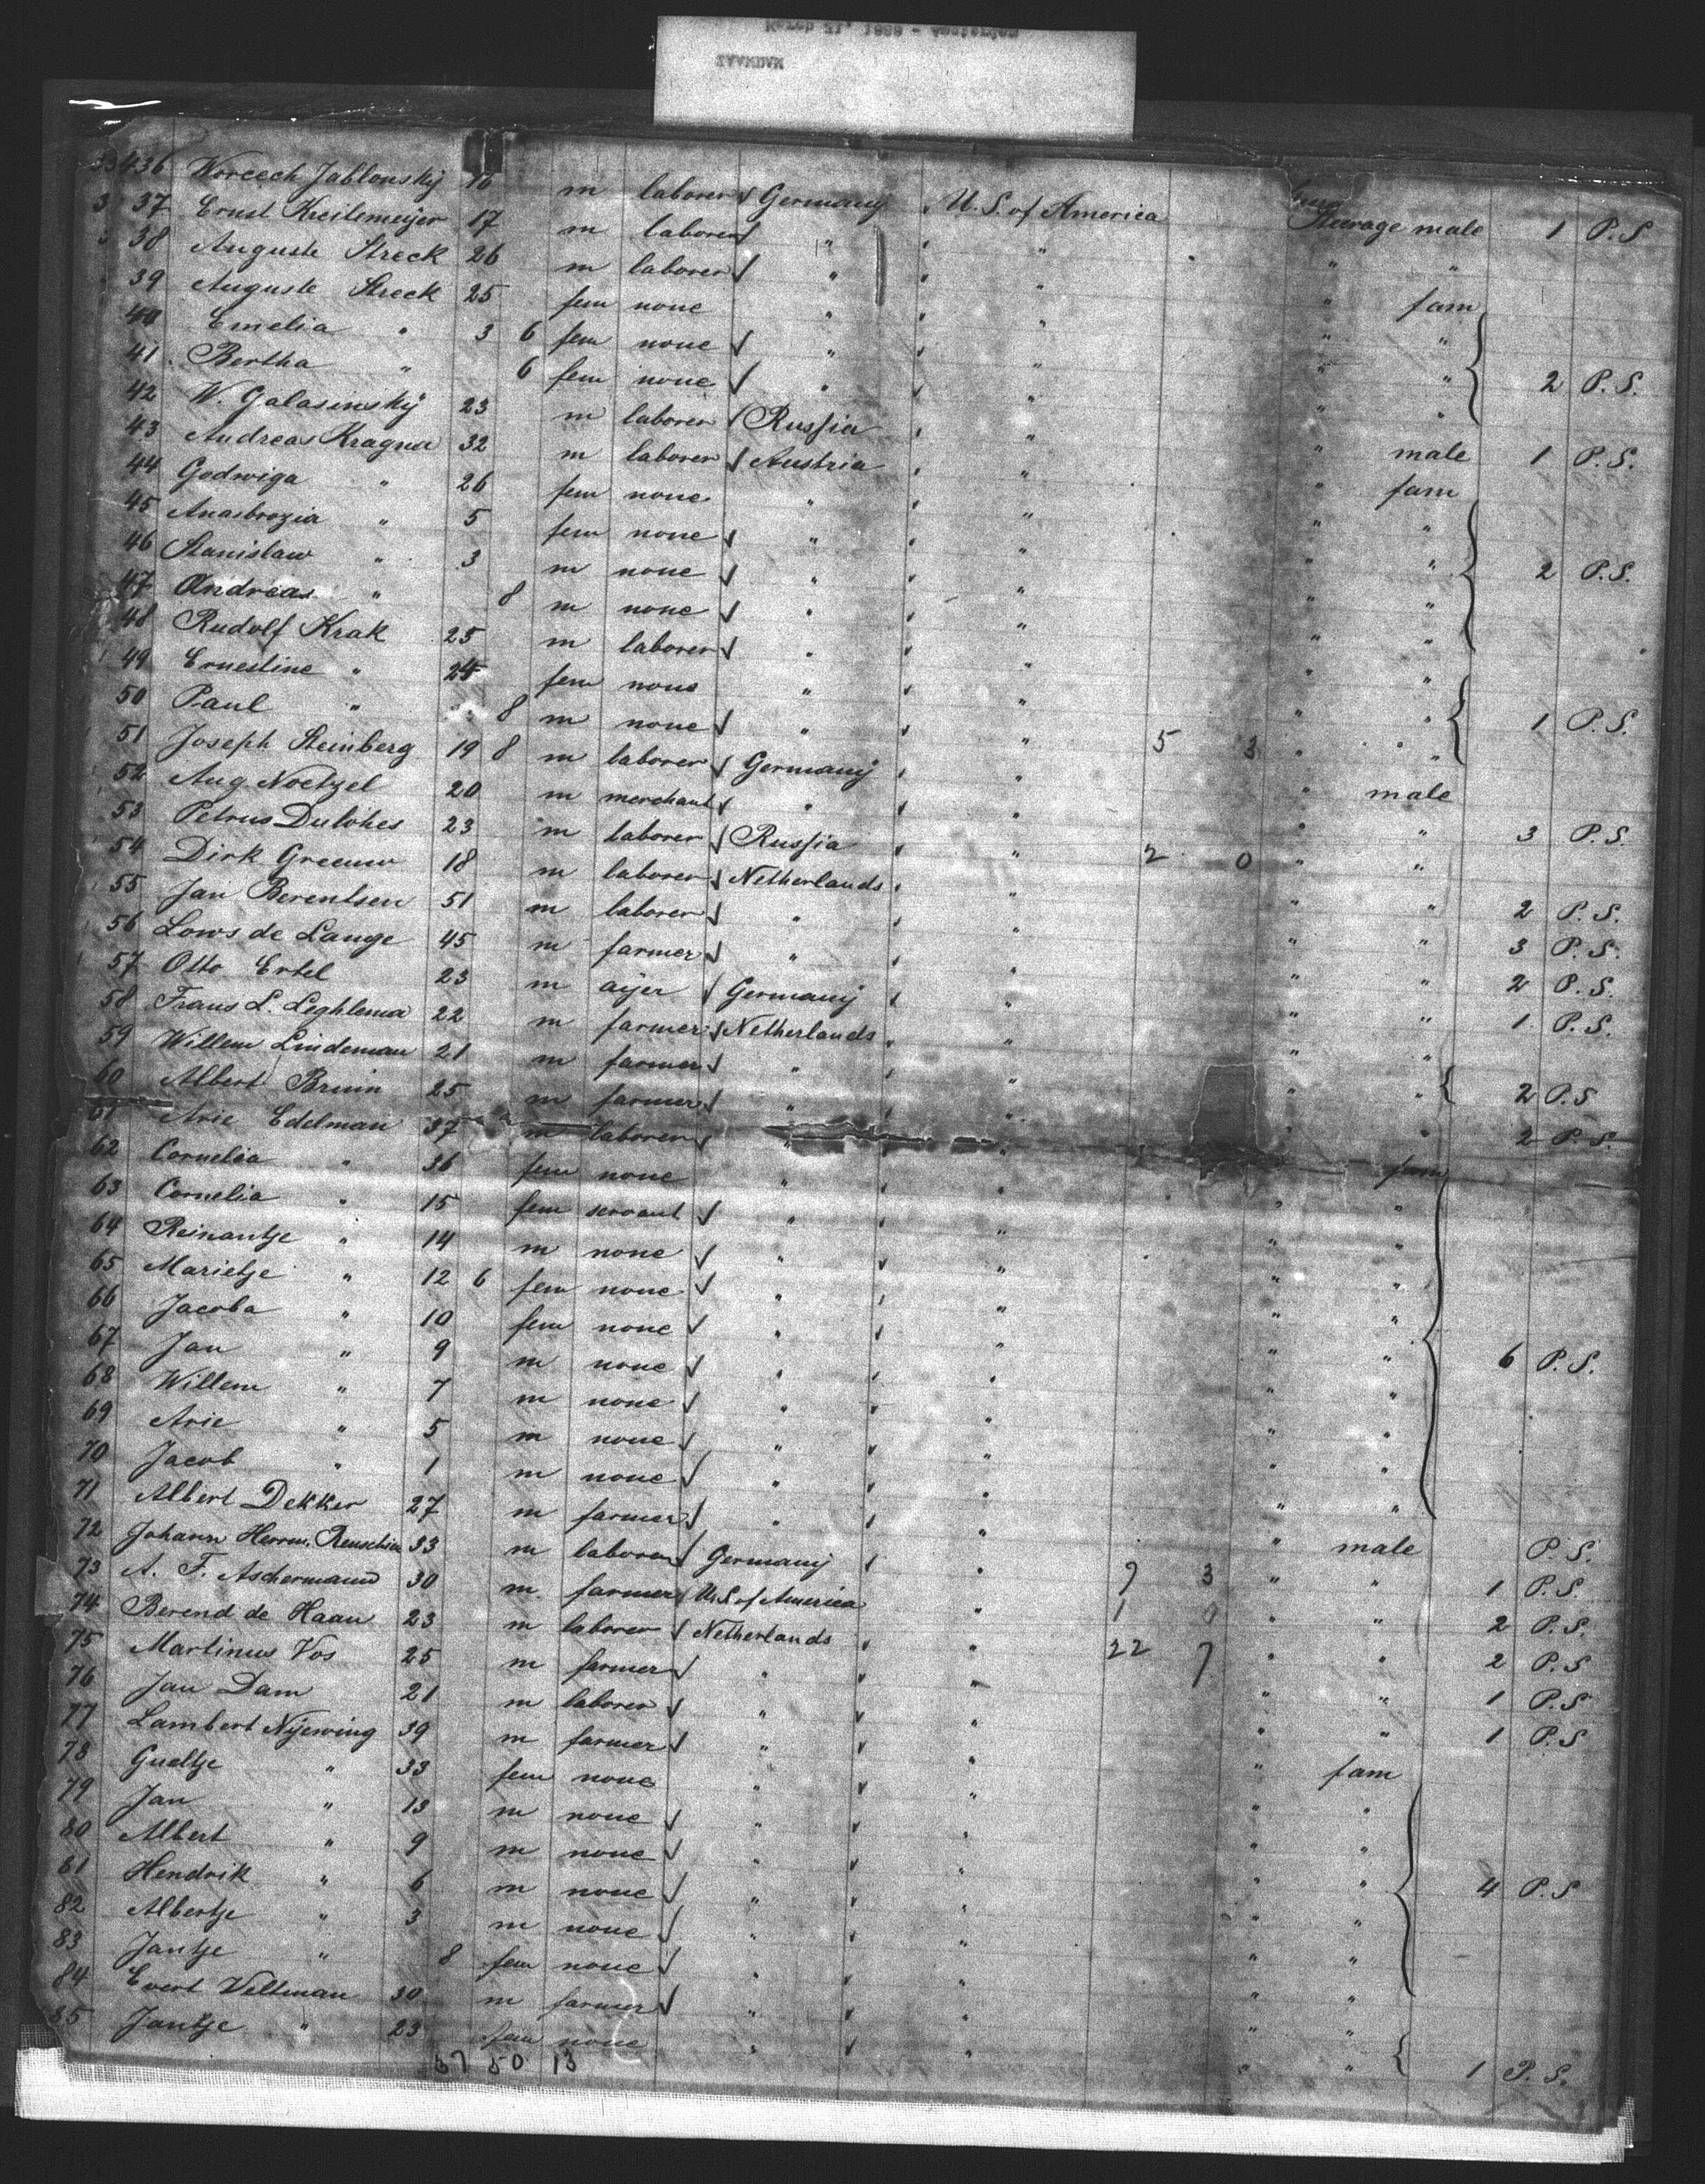 436 Worcech Jablonskij 16 m laborer Germanij U.S. of America Steerage male 1 P.S.
37 Ernst Kreilemeijer 17 m laborer " " " "
38 Auguste Streck 26 m laborer " " " fam
39 Auguste Streck 25 fem none " " " "
40 Emelia " 3 6 fem none " " " " 2 P.S.
41 Bertha " 6 fem none " " " "
42 W. Galasinskij 23 m laborer Russia " " male 1 P.S.
43 Andreas Kragna 32 m laborer Austria " " fam
44 Godwiga " 26 fem none " " " "
45 Anasbrozia " 5 fem none " " " "
46 Stanislaw " 3 m none " " " " 2 P.S.
47 Andreas " 8 m none " " " "
48 Rudolf Krak 25 m laborer " " " "
49 Ernestine " 24 fem none " " " "
50 Paul " 8 m none " " " " 1 P.S.
51 Joseph Steinberg 19 8 m laborer Germanij " 5 3 " male
52 Aug. Noetzel 20 m merchant " " " " 3 P.S.
53 Petrus Dulohes 23 m laborer Russia " 2 0 " "
54 Dirk Greeuw 18 m laborer Netherlands " " " 2 P.S.
55 Jan Berentsen 51 m laborer " " " " 3 P.S.
56 Lows de Lange 45 m farmer " " " " 2 P.S.
57 Otto Ertel 23 m aijer Germanij " " " 1 P.S.
58 Frans L. Leghlema 22 m farmer Netherlands " " "
59 Willem Lindeman 21 m farmer " " " " 2 P.S
60 Albert Bruin 25 m farmer " " " " 2 P.S.
61 Arie Edelman 37 m laborer " " fam
62 Cornelia " 36 fem none " " " "
63 Cornelia " 15 fem servant " " " "
64 Reinantje " 14 m none " " " "
65 Marietje " 12 6 fem none " " " "
66 Jacoba " 10 fem none " " " " 6 P.S.
67 Jan " 9 m none " " " "
68 Willem " 7 m none " " " "
69 Arie " 5 m none " " " "
70 Jacob " 1 m none " " " "
71 Albert Dekker 27 m farmer " " " male P.S.
72 Johann Herrm. 33 m laborer Germanij " 3 " " 1 P.S.
73 A. F. Aschermann 30 m farmer U.S. of America " 1 " " 2 P.S.
74 Berend de Haan 23 m laborer Netherlands " 22 7 " " 2 P.S
75 Martinus Vos 25 m farmer " " " " 1 P.S
76 Jan Dam 21 m laborer " " " " 1 P.S
77 Lambert Nijewing 39 m farmer " " " fam
78 Gueltje " 33 fem none " " " "
79 Jan " 13 m none " " " "
80 Albert " 9 m none " " " "
81 Hendrik " 6 m none " " " " 4 P.S
82 Albertje " 3 m none " " " "
83 Jantje " 8 fem none " " " "
84 Evert Veltman 30 m farmer " " " "
85 Jantje " 23 fem none " " " " 1 P.S.
37 50 13